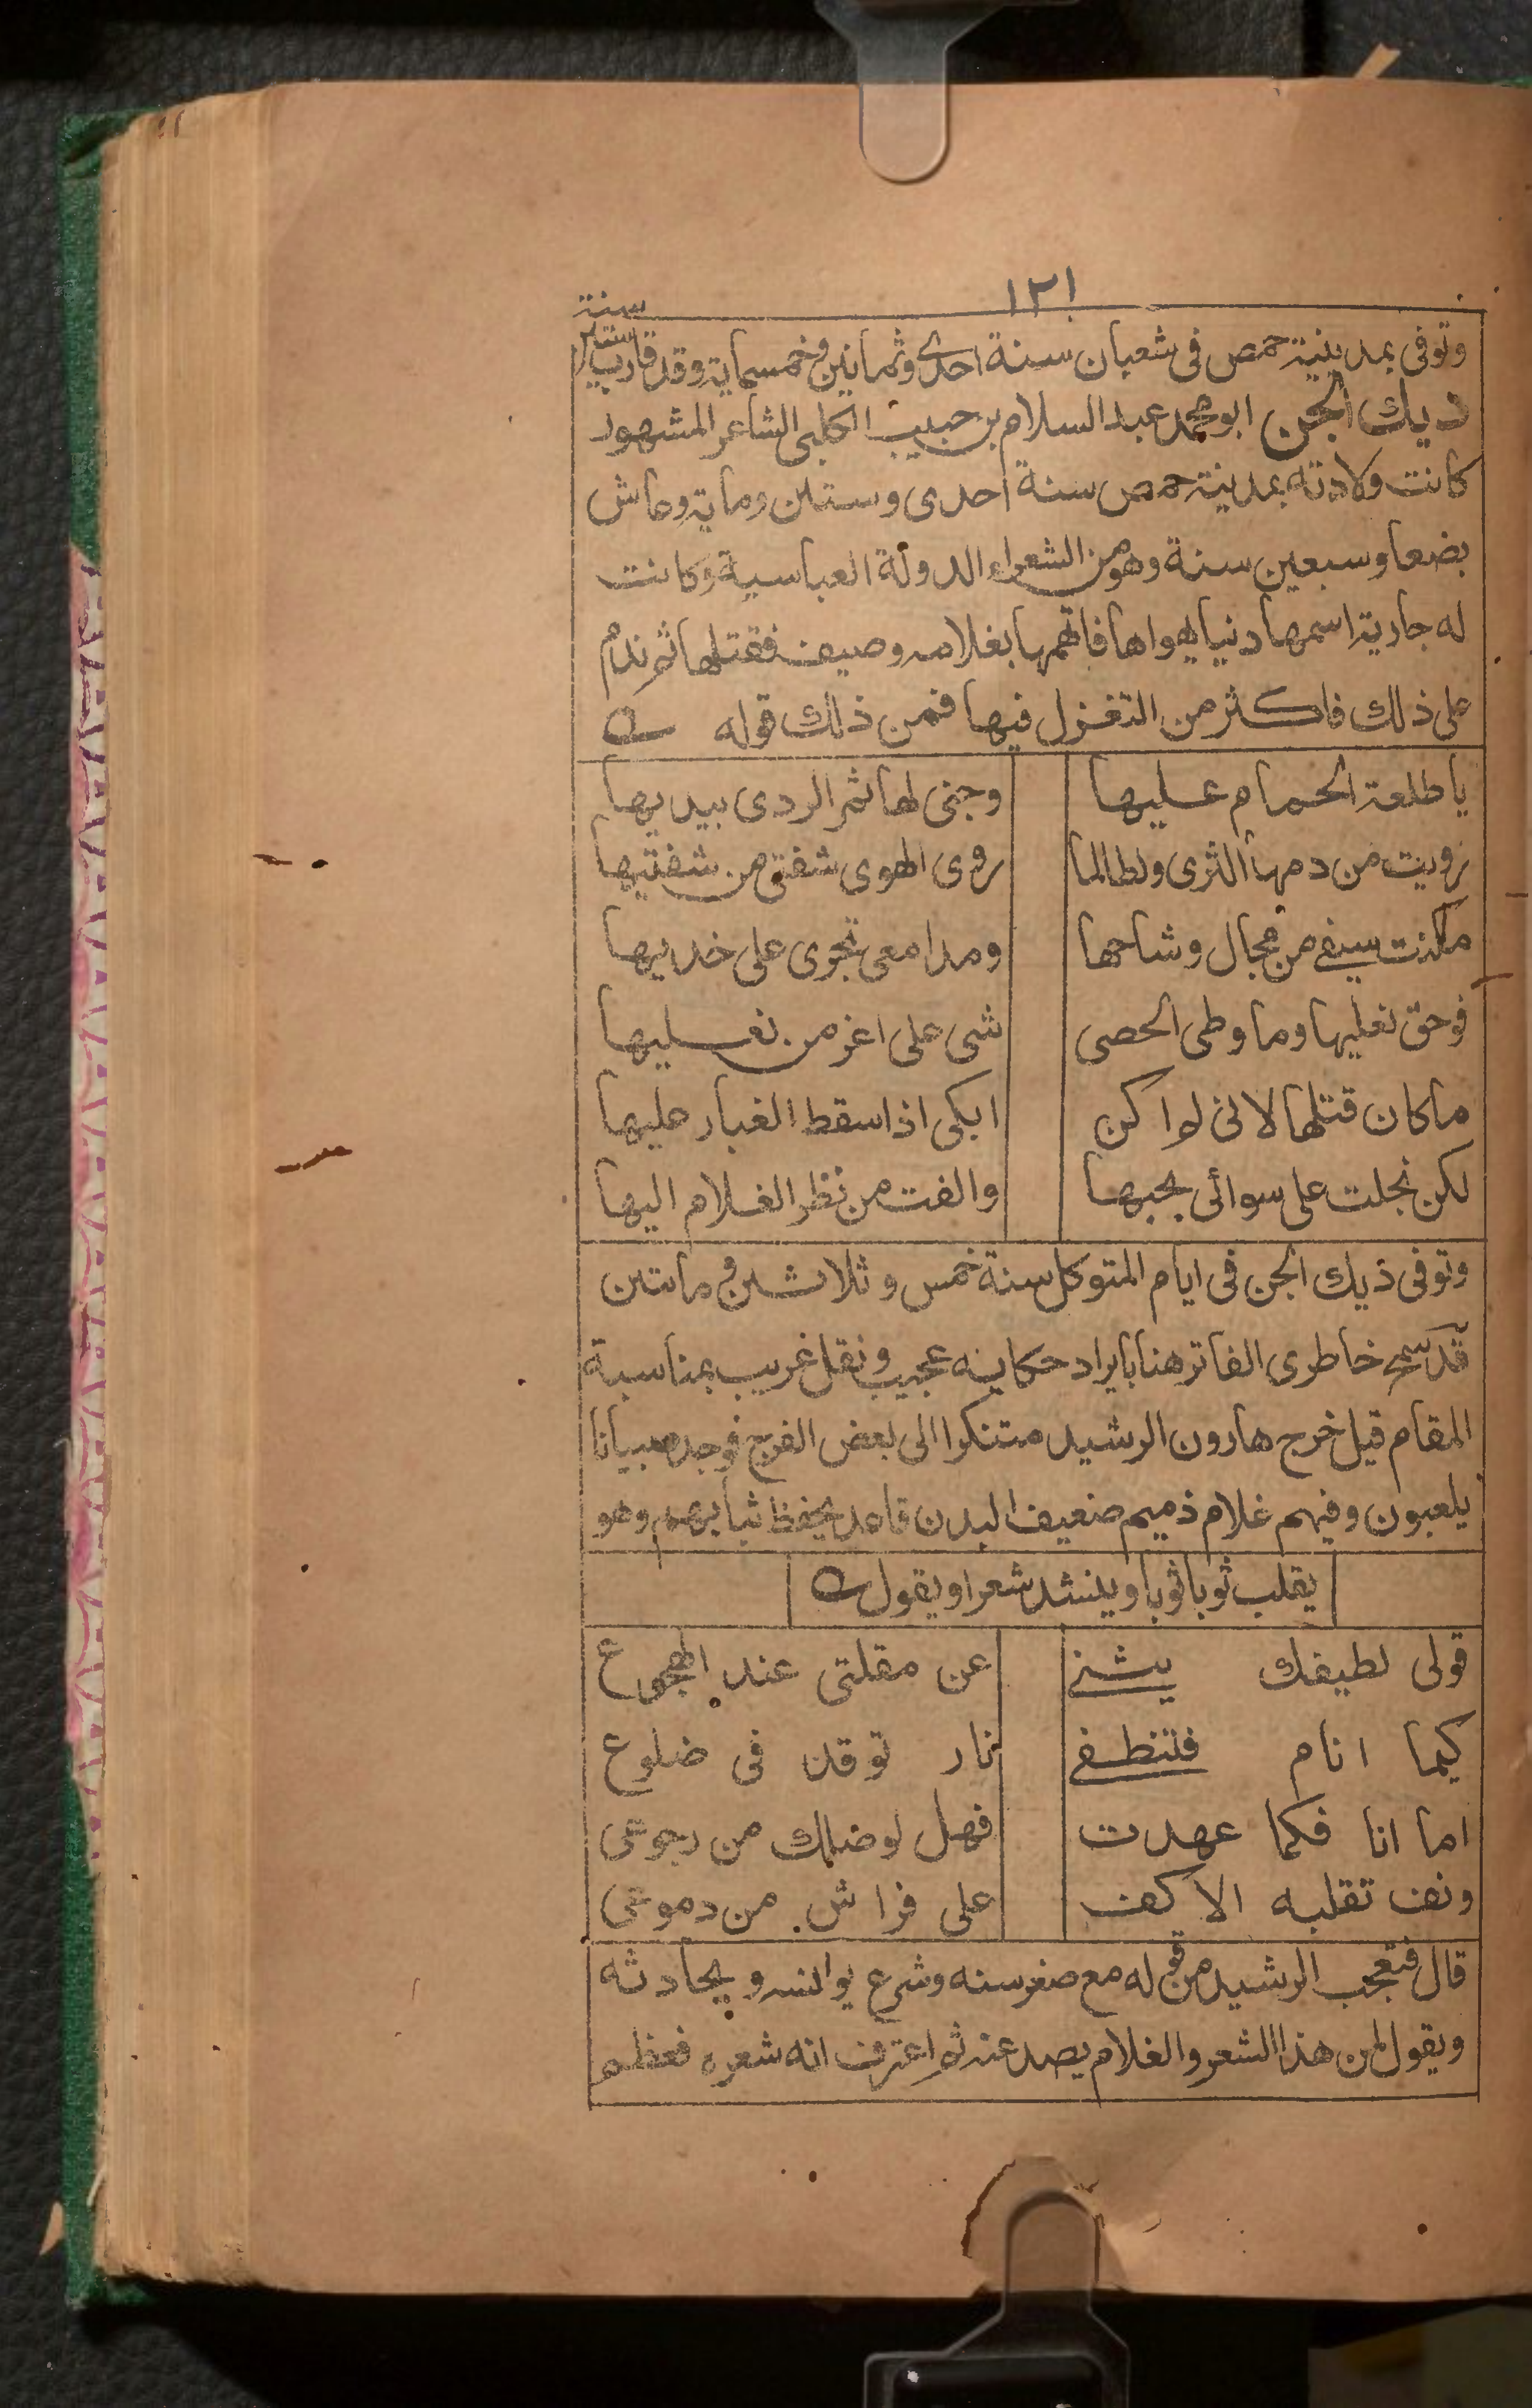 ١٢١
وتوفى بمدينة حمص فى شعبان سنة احدى وثمانين وخمسماية وقد قارب ستين سنة
ديك الجن ابو محمد عبد السلام بن حبيب الكلبى الشاعر المشهور
كانت ولادته بمدينة حمص سنة احدى وستين وماية وعاش
بضعا وسبعين سنة وهو من الشعراء الدولة العباسية وكانت
له جارية اسمها دنيا يهواها فاتهمها بغلامه وصيف فقتلها ثم ندم
على ذلك فاكثر من التغزل فيها فمن ذلك قوله
يا طلعة الحمام عليها وجنى لها ثمر الردى بيديها
رويت من دمها الثرى ولطالما روى الهوى شفتى من شفتيها
مكنت سيفى من مجال وشاحها ومدامعى تجرى على خديها
فوحق نعليها وما وطى الحصى شى على اعز من نعليها
ماكان قتلها لانى لو اكن ابكى اذا سقط الغبار عليها
لكن نجلت على سوائى بحبها والفت من نظر الغلام اليها
وتوفى ذيك الجن فى ايام المتوكل سنة خمس وثلاثين و ماتين
قد سمح خاطرى الفاتر هنا بايراد حكاية عجيب ونقل غريب بمناسبة
المقام قيل خرج هارون الرشيد متنكرا الى بعض الفرج فوجد صبيانا
يلعبون وفيهم غلام ذميم ضعيف البدن قاعد يحفظ ثيابهم وهو
يقلب ثوبا ثوبا وينشد شعرا ويقول
قولى لطيفك ينثنى عن مقلتى عند الهجوع
كيما انام فتنطفى نار توقد فى ضلوع
اما انا فكما عهدت فهل لوصلك من رجوعى
ونف تقلبه الاكف على فراش من دموعى
قال فتعجب الرشيد من قوله مع صغر سنه وشرع يوانسه ويحادثه
ويقول لمن هذا الشعر والغلام يصد عنه ثم اعترف انه شعره فعظم